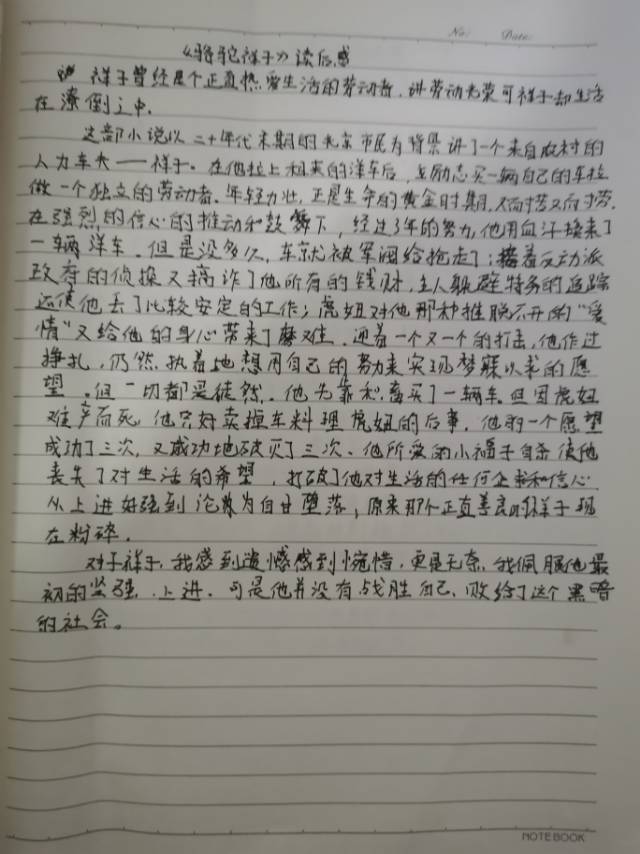 No: Date:
《骆驼祥子》读后感
祥子曾经是个正直热爱生活的劳动者，讲劳动光荣可祥子却生活
在潦倒之中．
这部小说以二十年代末期的北京市民为背景讲了一个来自农村的
人力车夫——祥子。在他拉上租来的洋车后，立励志买一辆自己的车拉
做一个独立的劳动者。年轻力壮，正是生命的黄金时期，
在强烈的信心的推动和鼓舞下，经过3年的努力，他用血汗换来了
一辆洋车．但是没多久，车就被军阀给抢走了；接着反动派
政府的侦探又搞诈了他所有的钱财，主人躲避特务的追踪
还使他丢了比较安定的工作；虎妞对他那种推脱不开的“爱
情”又给他的身心带来了磨难．迎着一个又一个的打击，他作过
挣扎，仍然执着地想用自己的努力来实现梦寐以求的愿
望。但一切都是徒然．他先靠私畜买了一辆车．但因虎妞
难产而死，他只好卖掉车料理虎妞的后事，他的一个愿望
成功了三次，又成功地破灭了三次．他所爱的小福子自杀使他
丧失了对生活的希望，打破了他对生活的任何企求和信心．
从上进好强到沦落为自甘堕落，原来那个正直善良的祥子现
在粉碎．
对于祥子，我感到遗憾感到惋惜，更是无奈，我佩服他最
初的坚强．上进．可是他并没有战胜自己，败给了这个黑暗
的社会。
NOTEBOOK